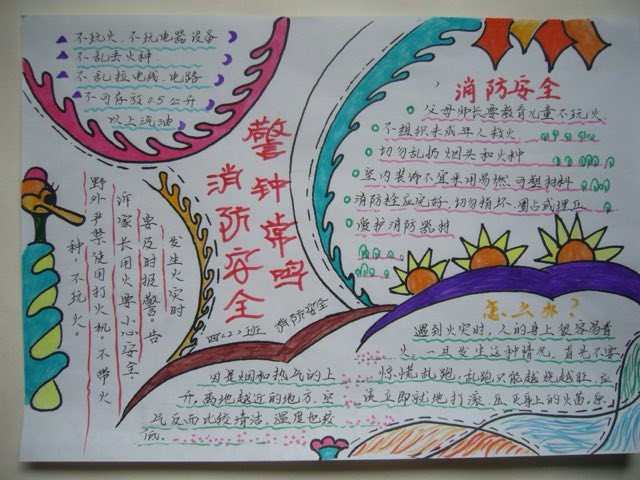 不玩火、不玩电器设备
不乱丢火种
不乱拉电线、电路
不可存放0.5公升
以上汽油
警钟常鸣
消防安全
消防安全
父母师长要教育儿童不玩火
不组织未成年人救火
切勿乱扔烟头和火种
室内装饰不宜采用易燃、可塑材料
消防栓应完好、切勿损坏、圈占或埋压
爱护消防器材
发生火灾时
要及时报警。告
诉家长用火要小心安全。
野外严禁使用打火机，不带火
种，不玩火。
消防安全
怎么办？
遇到火灾时，人的身上很容易着
火，一旦发生这种情况，首先不要
惊慌乱跑，乱跑只能越烧越旺，应
该立即就地打滚，压灭身上的火苗。
因是烟和热气的上
升，离地越近的地方，空
气反而比较清洁，温度也较
低。